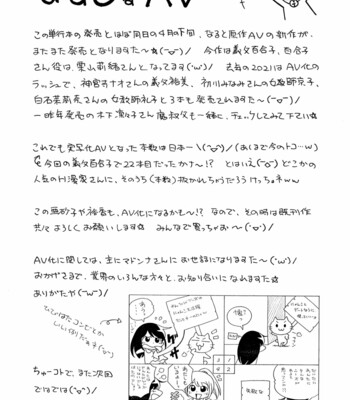 この単行本の発売とほぼ同日の4月の下旬、なると原作AVの新作が、
またまた発売となりました〜☆(^o^)/ 今作は義父百合子、百合子
さん役は、栗山莉緒さんとなってます(^ω^)/ 去年の2021はAV化の
ラッシュで、神宮寺ナオさんの義父裕美、初川みなみさんの女教師京子、
白石茉莉奈さんの女教師礼子と3本も発売されます〜(^o^)/
一昨年発売の木下凛々子さん 叔父も一緒に、チェックしてみて下さい☆
これでも実写化AVとなった本数は日本一\(^o^)/(あくまで今のトコ…w)
今回の義父百合子で22本目だったかナ〜!? とはいえ(^o^)どこかの
人気のH漫家さんに、そのうち(本数)抜かれちゃうだろうけっちょネww
この亜砂子や裕香も、AV化になるかも〜!? なので、その時は既刊作
共々よろしくお願いします☆ みんなで買っちゃお〜(^o^)/
AV化に関しては、主にマドンナさんにお世話になりますた〜(^ω^)/
おかげさまで、業界のいろんな方々と、お知り合いになれますた☆
ありがたや(^ω^)/
ちゅーコトで、また次回
ではでは(^o^)/